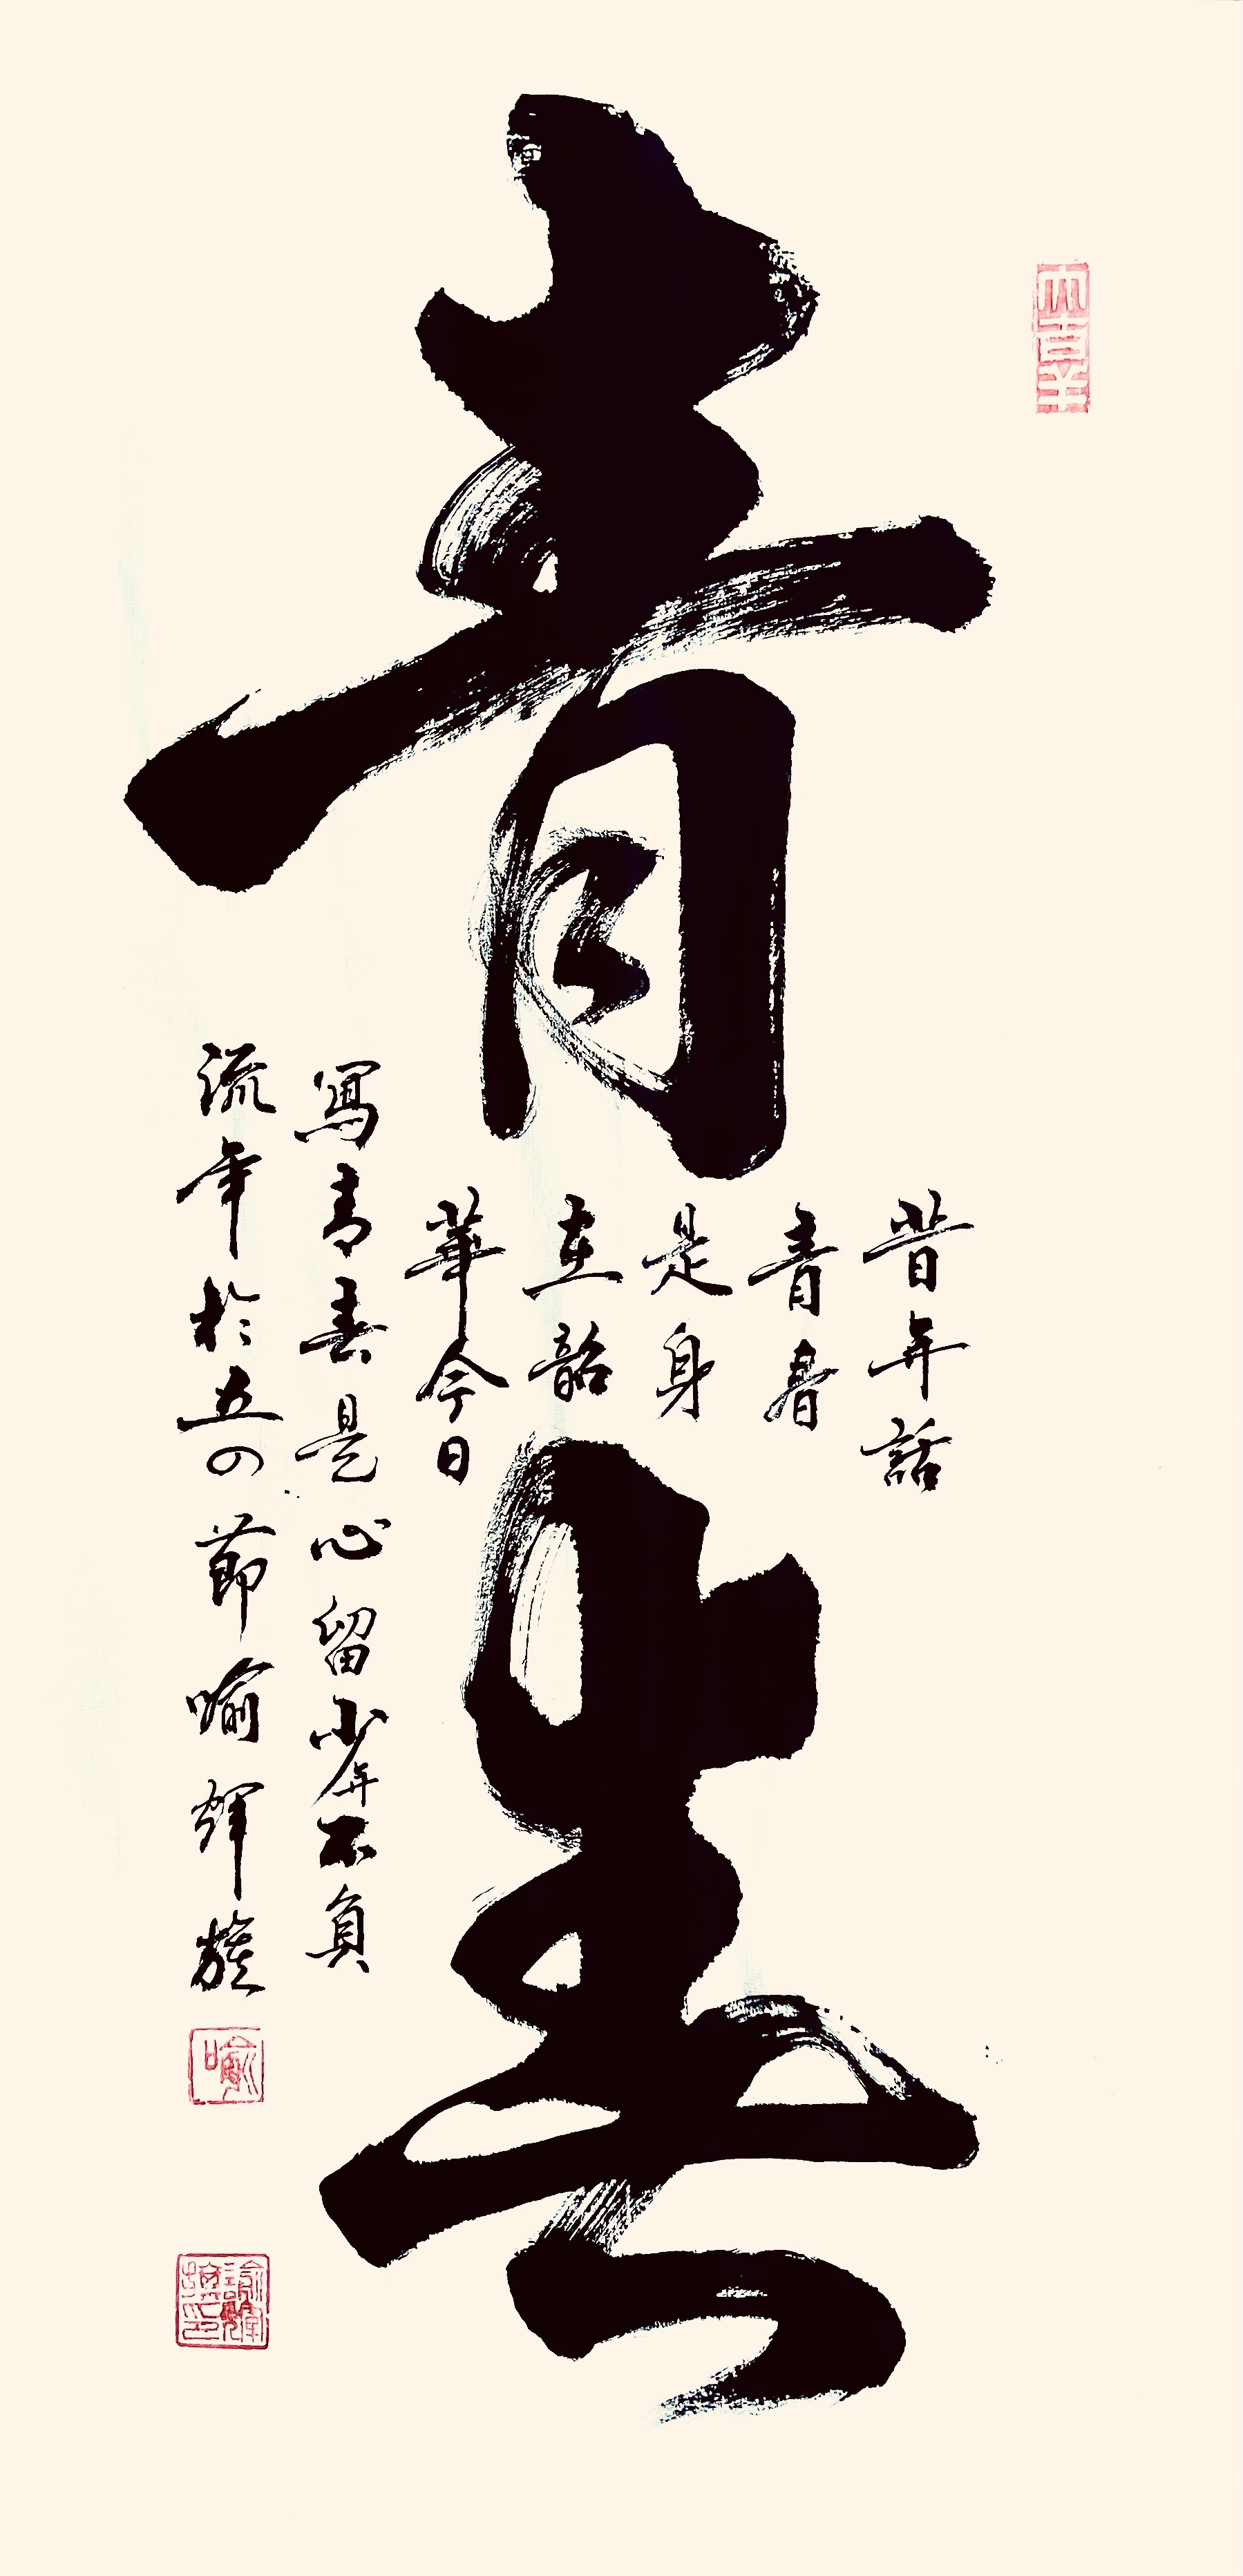 青春
昔年話
青春
是身
在韶
華今日
寫青春是心留少年不負
流年於五四節喻輝蕤
大吉羊
喻